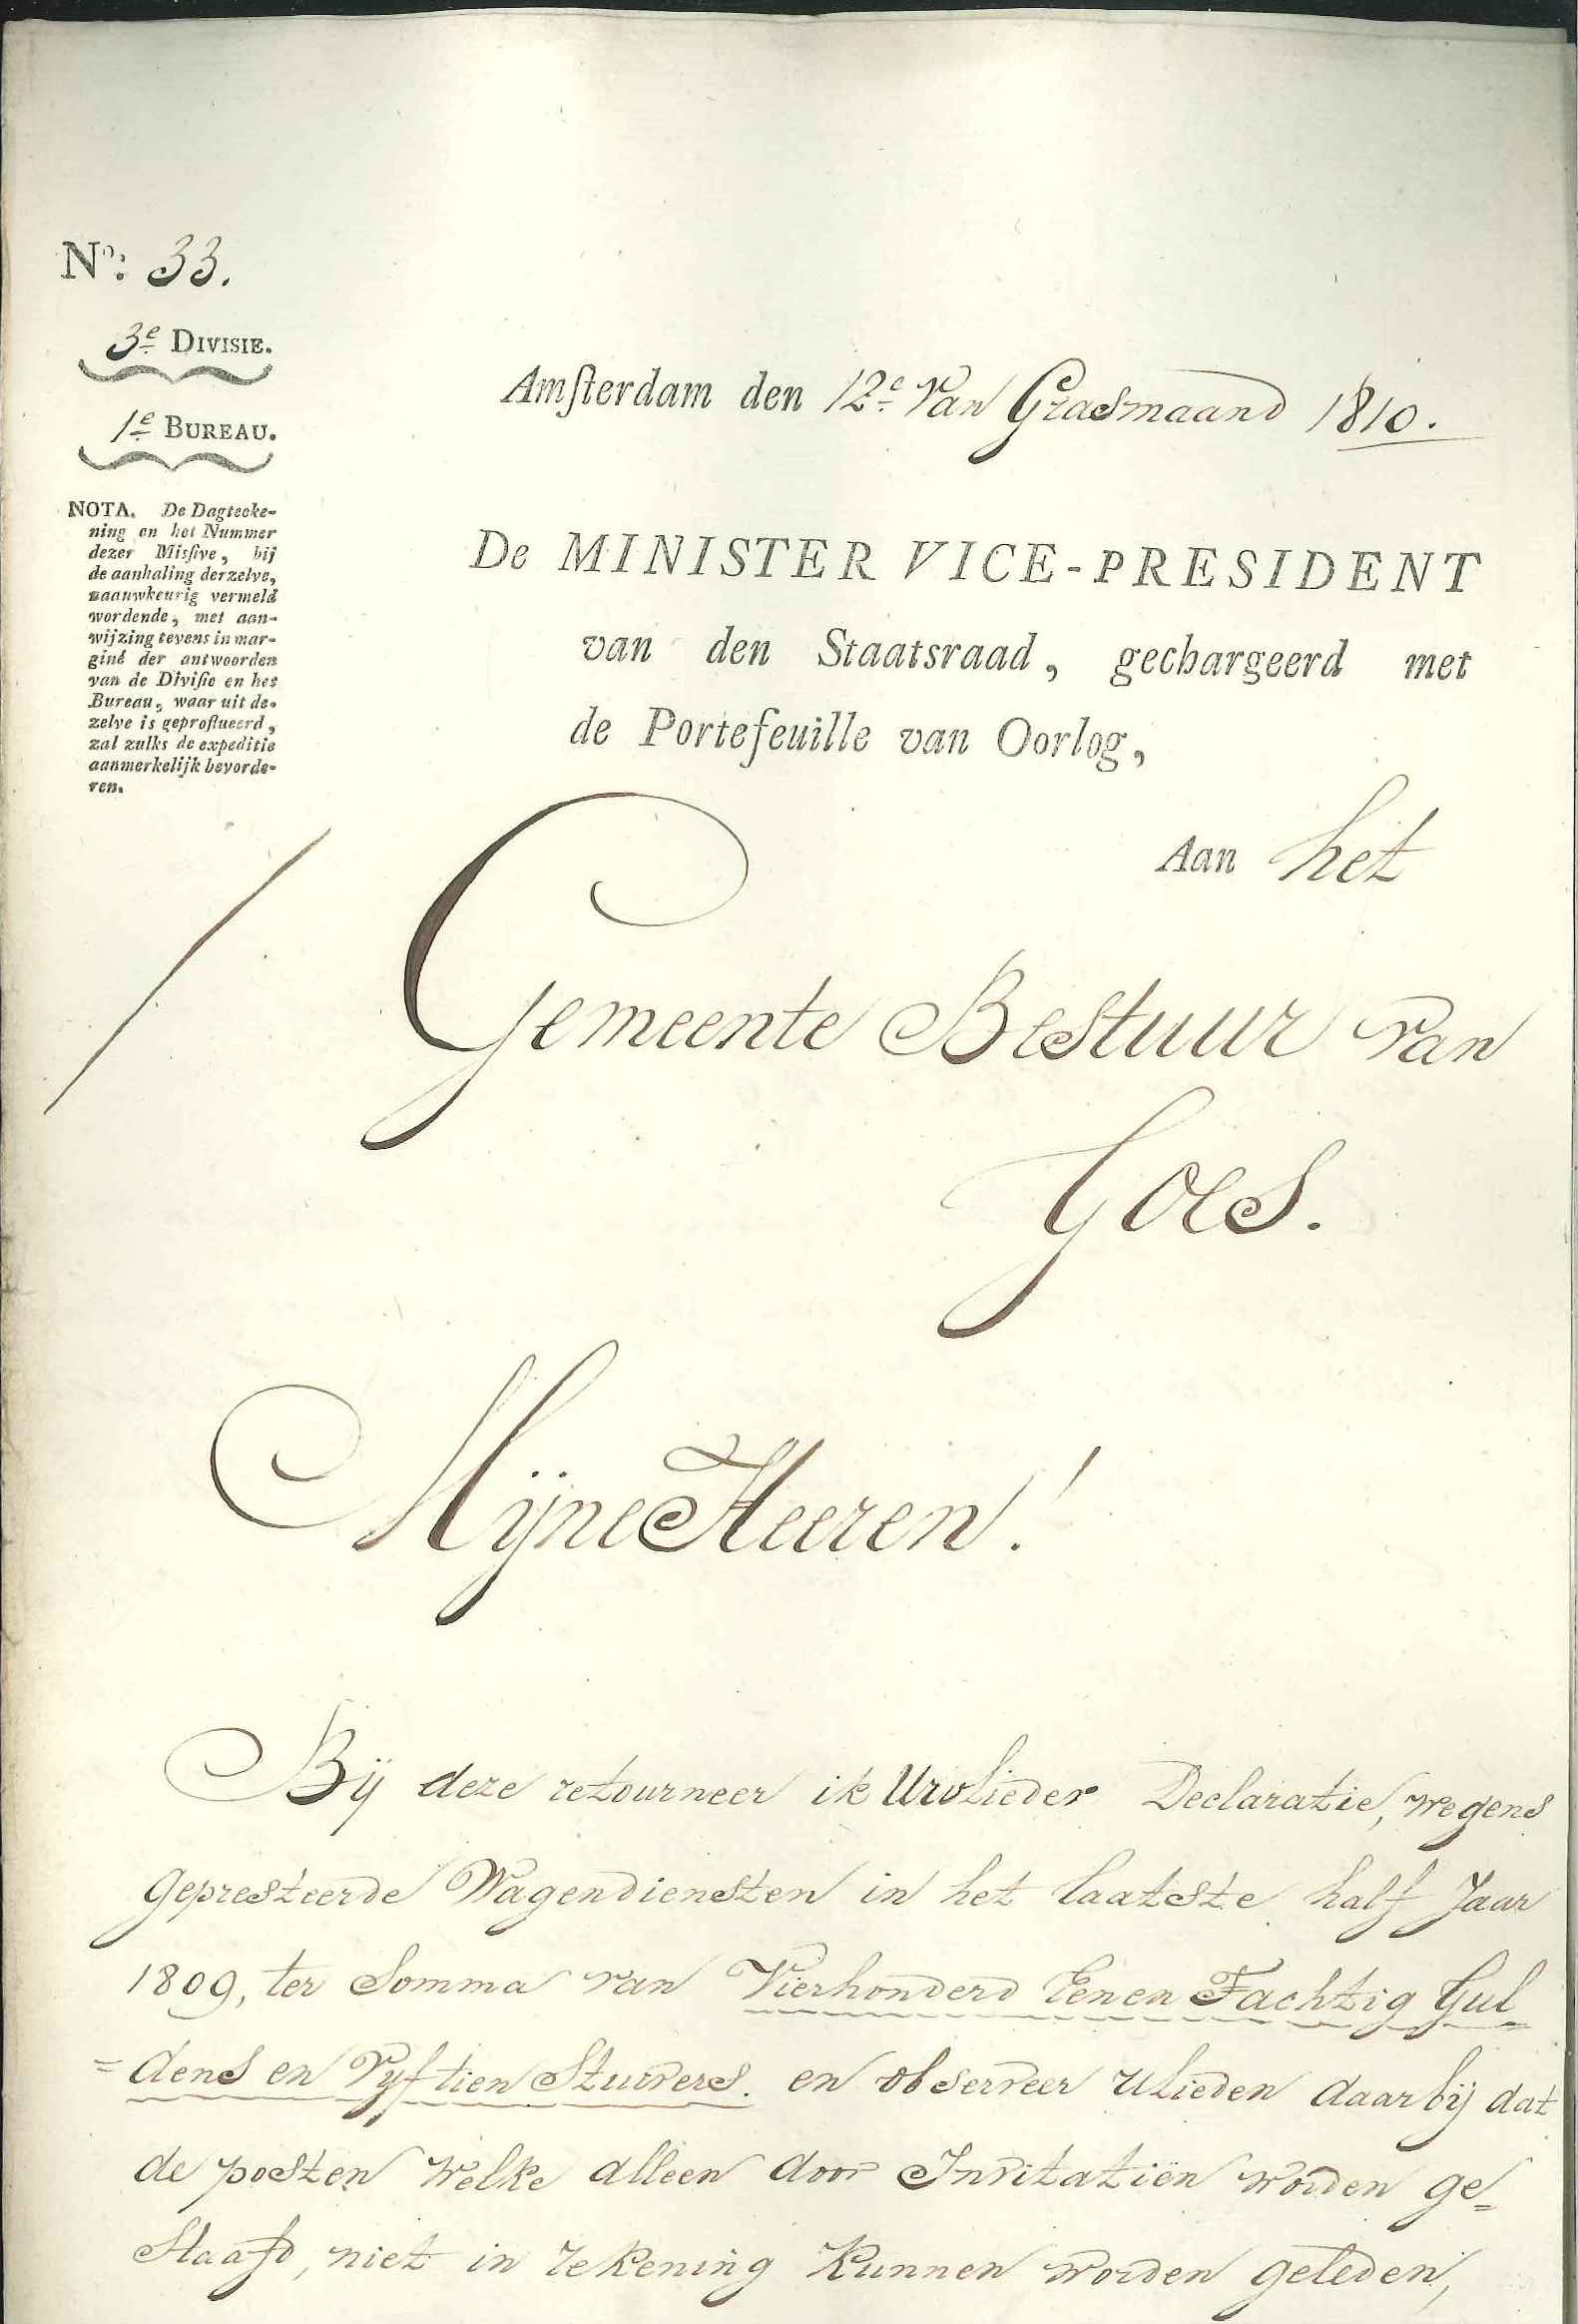 Nº: 33.
3e DIVISIE.
1e BUREAU.
NOTA. De Dagteeke-
ning en het Nummer
dezer Misſive, bij
de aanhaling derzelve,
naauwkeurig vermeld
wordende, met aan-
wijzing tevens in mar-
giné der antwoorden
van de Diviſie en het
Bureau, waar uit de-
zelve is geproflueerd,
zal zulks de expeditie
aanmerkelijk bevorde-
ren.
Amſterdam den 12e van Grasmaand 1810.
De MINISTER VICE-PRESIDENT
van den Staatsraad, gechargeerd met
de Portefeuille van Oorlog,
Aan het
Gemeente Bestuur van
Goes.
Mijne Heeren!
Bij deze retourneer ik Uwlieder Declaratie, wegens
gepresteerde Wagendiensten in het laatste half Jaar
1809, ter Somma van Vierhonderd Eenen Tachtig Gul
=dens en Vyftien Stuivers. en observeer Ulieden daar bij dat
de posten welke alleen door Invitatiën worden ge=
Staafd, niet in rekening kunnen worden geleden,